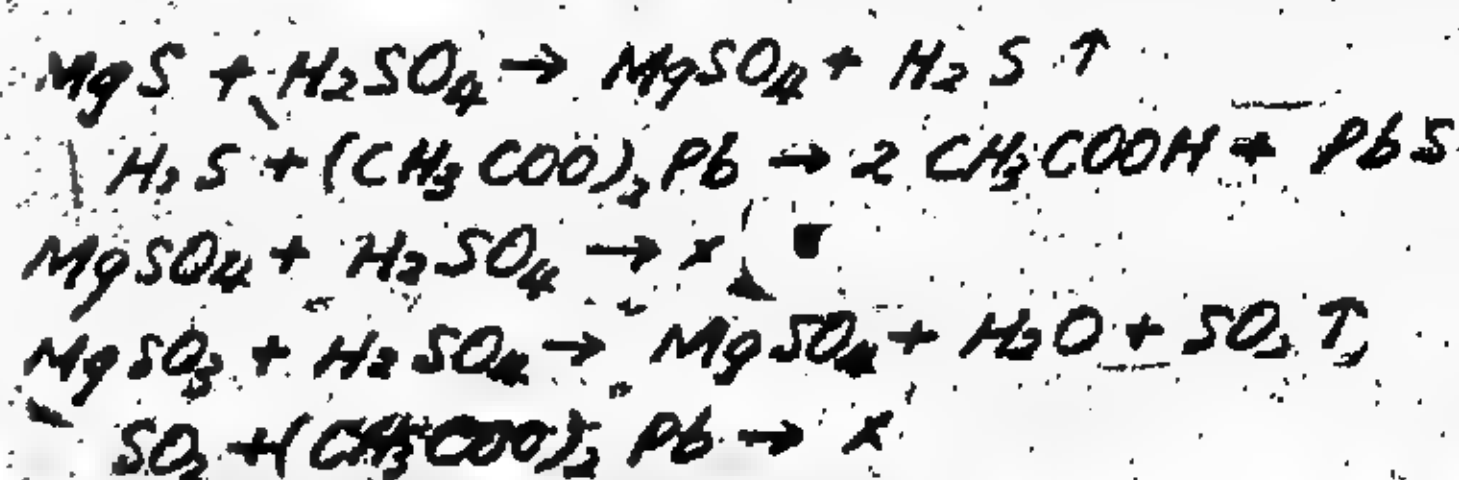 MgS + H₂SO₄ → MgSO₄ + H₂S ↑
H₂S + (CH₃COO)₂Pb → 2 CH₃COOH + PbS
MgSO₄ + H₂SO₄ → x
MgSO₃ + H₂SO₄ → MgSO₄ + H₂O + SO₂ ↑,
SO₂ + (CH₃COO)₂ Pb → x